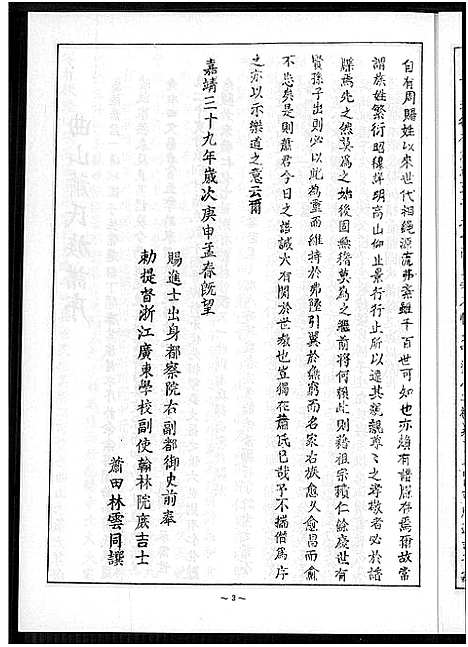 自有周賜姓以來世代相繩源流弗紊雖千百世可知也亦賴有譜牒存焉爾故常
謂族姓繁衍昭穆詳明高山仰止景行行止所以達其親親尊尊之孝敬者必於語
牒焉先之然莫為之始後固無徵莫為之繼前將何賴此則藉祖宗積仁餘慶世有
賢孫子出則必以此為重而維持於弗墜引翼於無窮而名家右族愈久愈昌而愈
不忘矣是則蕭君今日之譜誠大有関於世教也豈獨在蕭氏已哉予不揣僭為序
之亦以示樂道之意云爾
嘉靖三十九年歲次庚申孟春既望
賜進士出身都察院右副都御史前奉
勅提督浙江廣東學校副使翰林院庶吉士
莆田林雲同譔
~3~